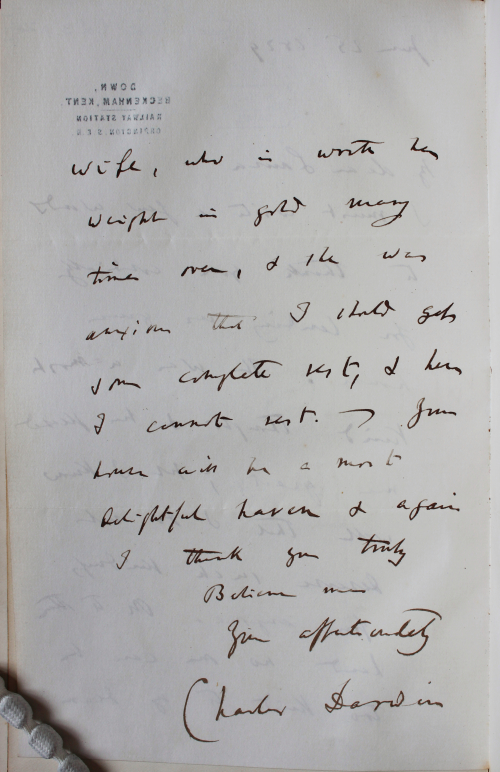 DOWN,
BECKENHAM, KENT.
RAILWAY STATION
ORPINGTON. S.E.R.
wife, who is worth her
weight in gold many
times over, & she was
anxious that I should get
some complete rest, & here
I cannot rest. — Your
house will be a most
delightful haven & again
I thank you truly
Believe me
Your affectionately
Charles Darwin